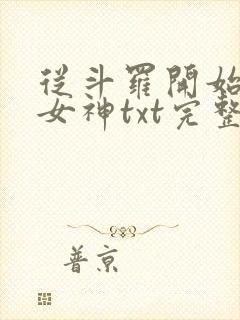 從斗羅開始
女神txt完整
普京